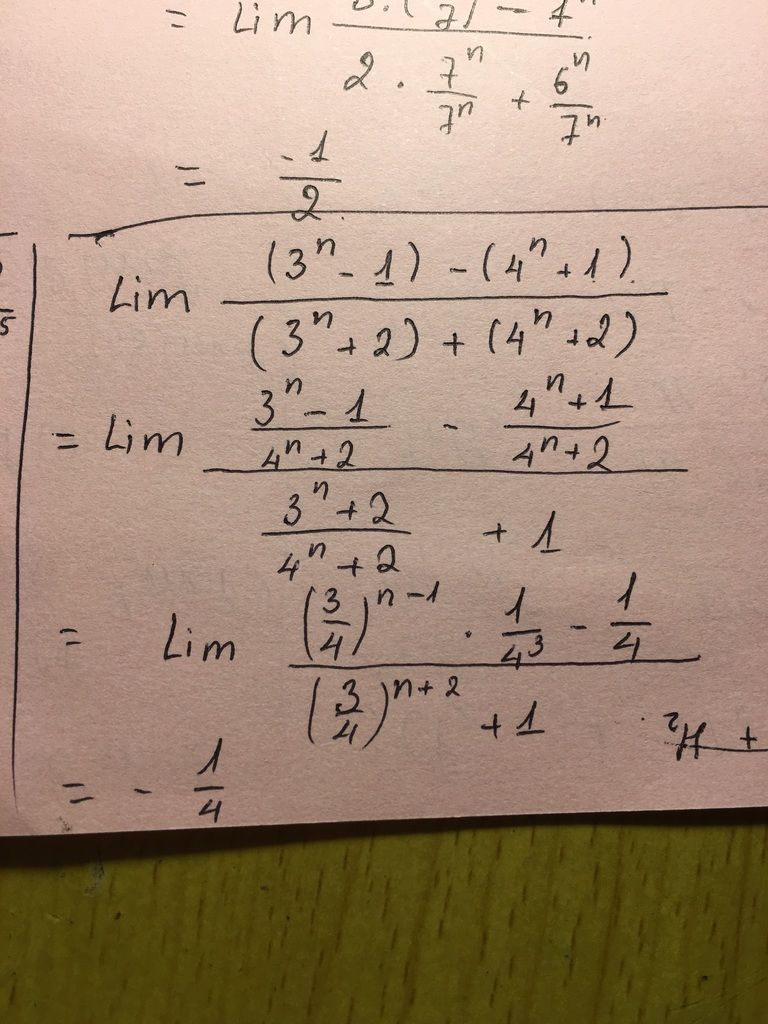 = Lim
2 · 7ⁿ/7ⁿ + 6ⁿ/7ⁿ
= -1/2
5
Lim ((3ⁿ - 1) - (4ⁿ + 1)) / ((3ⁿ + 2) + (4ⁿ + 2))
= Lim ((3ⁿ - 1)/(4ⁿ + 2) - (4ⁿ + 1)/(4ⁿ + 2)) / ((3ⁿ + 2)/(4ⁿ + 2) + 1)
= Lim ((3/4)ⁿ⁻¹ · 1/4³ - 1/4) / ((3/4)ⁿ⁺² + 1)
= - 1/4